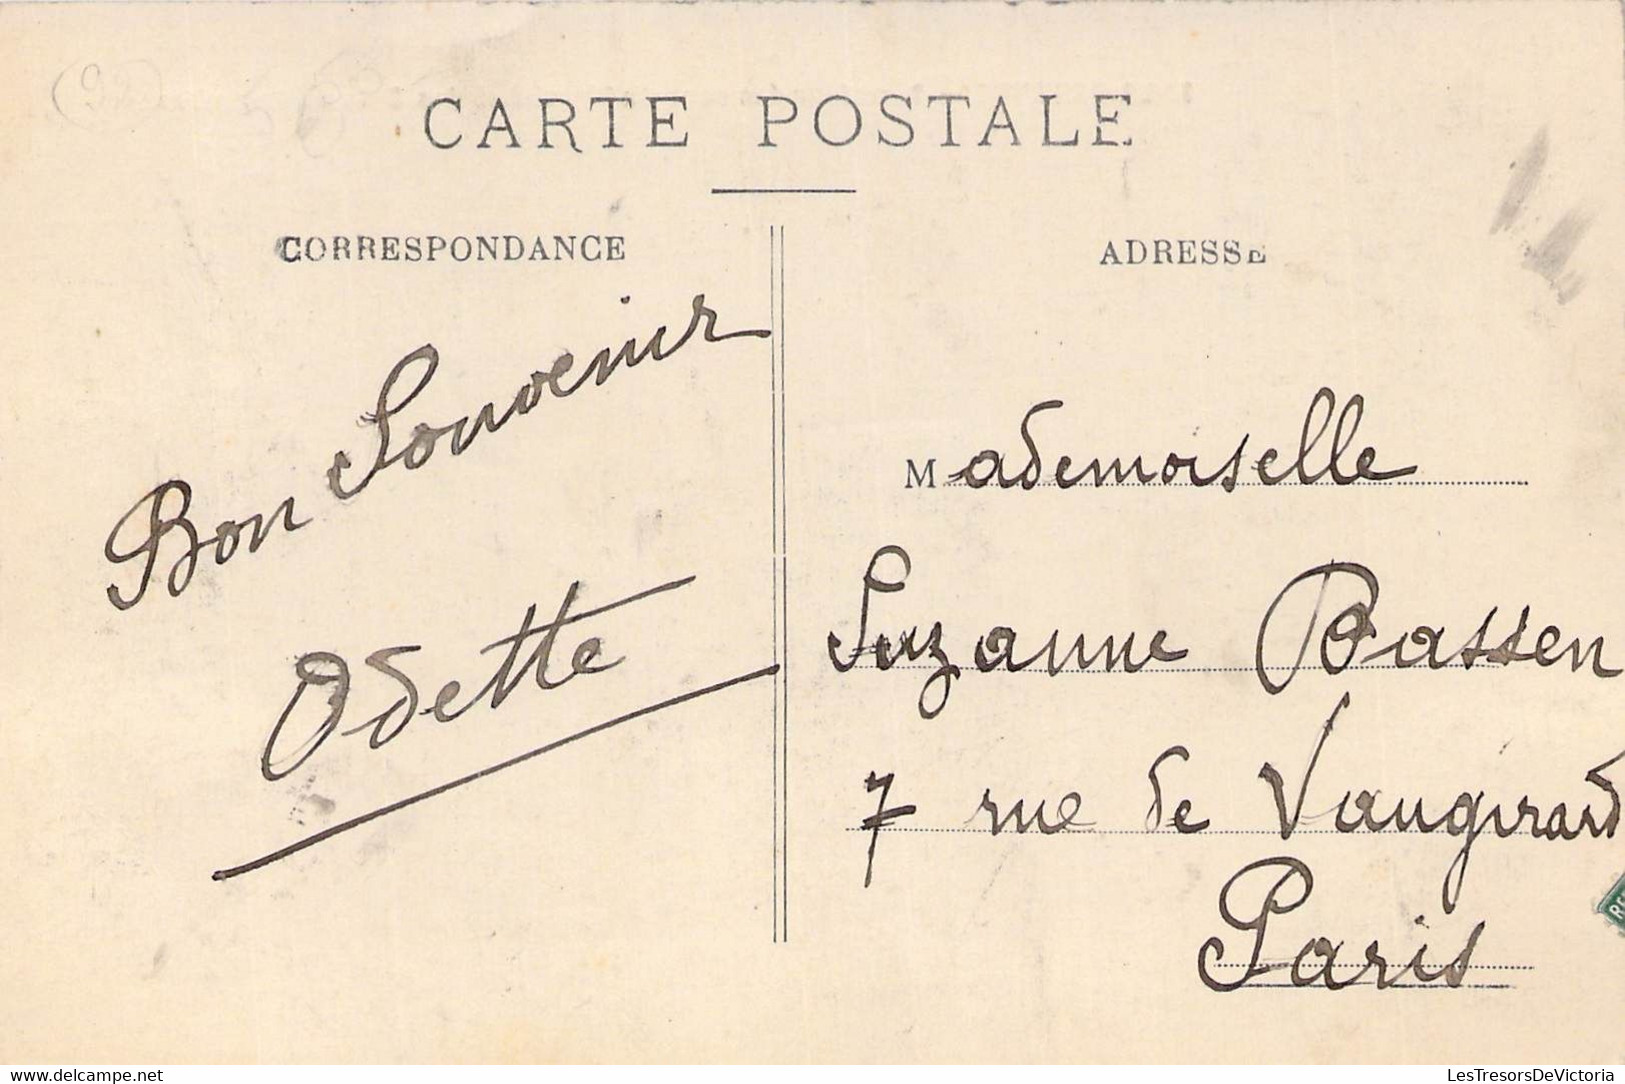 92
CARTE POSTALE
CORRESPONDANCE
ADRESSE
Bon Souvenir
Odette
Mademoiselle
Suzanne Bassen
7 rue de Vaugirard
Paris
www.delcampe.net
LesTresorsDeVictoria